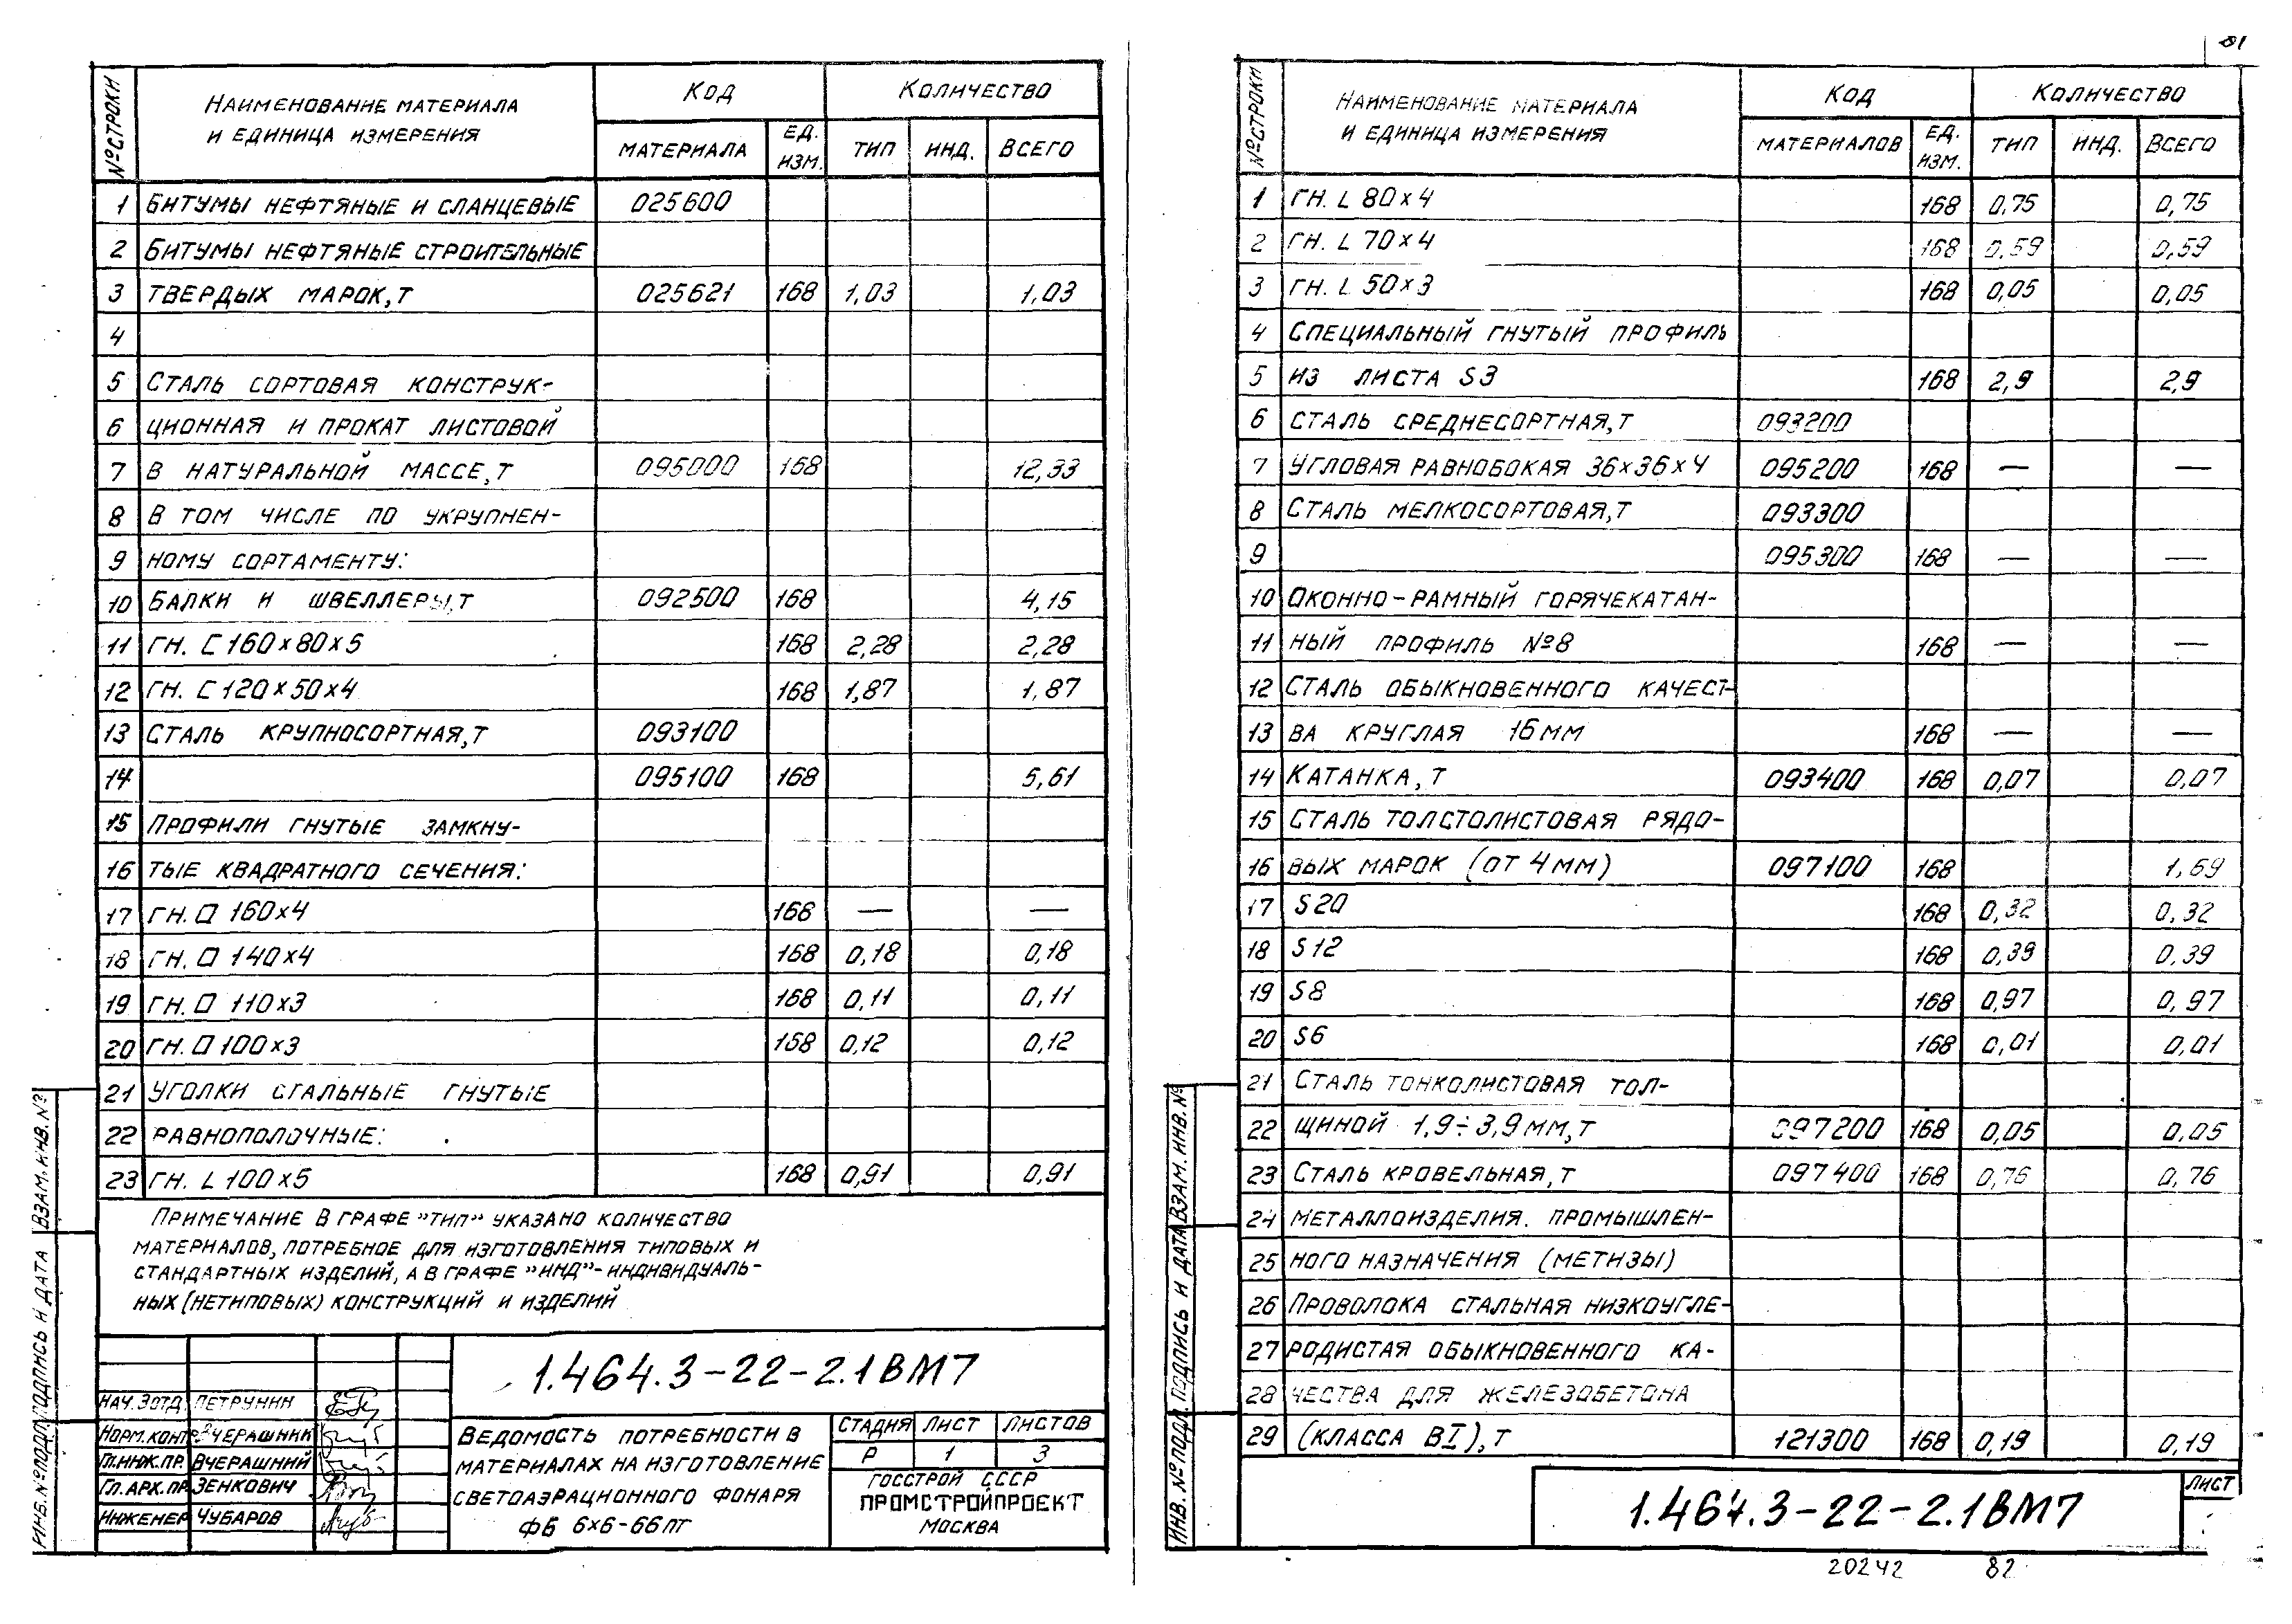 81
№ СТРОКИ
НАИМЕНОВАНИЕ МАТЕРИАЛА
И ЕДИНИЦА ИЗМЕРЕНИЯ
КОД
КОЛИЧЕСТВО
МАТЕРИАЛА
ЕД.
ИЗМ.
ТИП
ИНД.
ВСЕГО
1 БИТУМЫ НЕФТЯНЫЕ И СЛАНЦЕВЫЕ 025600
2 БИТУМЫ НЕФТЯНЫЕ СТРОИТЕЛЬНЫЕ
3 ТВЕРДЫХ МАРОК, Т 025621 168 1,03 1,03
4
5 СТАЛЬ СОРТОВАЯ КОНСТРУК-
6 ЦИОННАЯ И ПРОКАТ ЛИСТОВОЙ
7 В НАТУРАЛЬНОЙ МАССЕ, Т 095000 168 12,33
8 В ТОМ ЧИСЛЕ ПО УКРУПНЕН-
9 НОМУ СОРТАМЕНТУ:
10 БАЛКИ И ШВЕЛЛЕРЫ, Т 092500 168 4,15
11 ГН. С 160×80×5 168 2,28 2,28
12 ГН. С 120×50×4 168 1,87 1,87
13 СТАЛЬ КРУПНОСОРТНАЯ, Т 093100
14 095100 168 5,61
15 ПРОФИЛИ ГНУТЫЕ ЗАМКНУ-
16 ТЫЕ КВАДРАТНОГО СЕЧЕНИЯ:
17 ГН. □ 160×4 168 — —
18 ГН. □ 140×4 168 0,18 0,18
19 ГН. □ 110×3 168 0,11 0,11
20 ГН. □ 100×3 168 0,12 0,12
21 УГОЛКИ СТАЛЬНЫЕ ГНУТЫЕ
22 РАВНОПОЛОЧНЫЕ:
23 ГН. L 100×5 168 0,91 0,91
ПРИМЕЧАНИЕ В ГРАФЕ "ТИП" УКАЗАНО КОЛИЧЕСТВО
МАТЕРИАЛОВ, ПОТРЕБНОЕ ДЛЯ ИЗГОТОВЛЕНИЯ ТИПОВЫХ И
СТАНДАРТНЫХ ИЗДЕЛИЙ, А В ГРАФЕ "ИНД"- ИНДИВИДУАЛЬ-
НЫХ (НЕТИПОВЫХ) КОНСТРУКЦИЙ И ИЗДЕЛИЙ
ИНВ. № ПОДЛ. ПОДПИСЬ И ДАТА ВЗАМ. ИНВ. №
1.464.3-22-2.1ВМ7
НАЧ. ЗОТД. ПЕТРУНИН
НОРМ. КОНТР ВЧЕРАШНИЙ
ГЛ. ИНЖ. ПР. ВЧЕРАШНИЙ
ГЛ. АРХ. ПР. ЗЕНКОВИЧ
ИНЖЕНЕР ЧУБАРОВ
ВЕДОМОСТЬ ПОТРЕБНОСТИ В
МАТЕРИАЛАХ НА ИЗГОТОВЛЕНИЕ
СВЕТОАЭРАЦИОННОГО ФОНАРЯ
ФБ 6×6-66 ПТ
СТАДИЯ ЛИСТ ЛИСТОВ
Р 1 3
ГОССТРОЙ СССР
ПРОМСТРОЙПРОЕКТ
МОСКВА
№ СТРОКИ
НАИМЕНОВАНИЕ МАТЕРИАЛА
И ЕДИНИЦА ИЗМЕРЕНИЯ
КОД
КОЛИЧЕСТВО
МАТЕРИАЛОВ
ЕД.
ИЗМ.
ТИП
ИНД.
ВСЕГО
1 ГН. L 80×4 168 0,75 0,75
2 ГН. L 70×4 168 0,59 0,59
3 ГН. L 50×3 168 0,05 0,05
4 СПЕЦИАЛЬНЫЙ ГНУТЫЙ ПРОФИЛЬ
5 ИЗ ЛИСТА S3 168 2,9 2,9
6 СТАЛЬ СРЕДНЕСОРТНАЯ, Т 093200
7 УГЛОВАЯ РАВНОБОКАЯ 36×36×4 095200 168 — —
8 СТАЛЬ МЕЛКОСОРТОВАЯ, Т 093300
9 095300 168 — —
10 ОКОННО-РАМНЫЙ ГОРЯЧЕКАТАН-
11 НЫЙ ПРОФИЛЬ №8 168 — —
12 СТАЛЬ ОБЫКНОВЕННОГО КАЧЕСТ-
13 ВА КРУГЛАЯ 16 ММ 168 — —
14 КАТАНКА, Т 093400 168 0,07 0,07
15 СТАЛЬ ТОЛСТОЛИСТОВАЯ РЯДО-
16 ВЫХ МАРОК (ОТ 4 ММ) 097100 168 1,69
17 S20 168 0,32 0,32
18 S12 168 0,39 0,39
19 S8 168 0,97 0,97
20 S6 168 0,01 0,01
21 СТАЛЬ ТОНКОЛИСТОВАЯ ТОЛ-
22 ЩИНОЙ 1,9÷3,9 ММ, Т 097200 168 0,05 0,05
23 СТАЛЬ КРОВЕЛЬНАЯ, Т 097400 168 0,76 0,76
24 МЕТАЛЛОИЗДЕЛИЯ. ПРОМЫШЛЕН-
25 НОГО НАЗНАЧЕНИЯ (МЕТИЗЫ)
26 ПРОВОЛОКА СТАЛЬНАЯ НИЗКОУГЛЕ-
27 РОДИСТАЯ ОБЫКНОВЕННОГО КА-
28 ЧЕСТВА ДЛЯ ЖЕЛЕЗОБЕТОНА
29 (КЛАССА ВI), Т 121300 168 0,19 0,19
ИНВ. № ПОДЛ. ПОДПИСЬ И ДАТА ВЗАМ. ИНВ. №
1.464.3-22-2.1ВМ7
ЛИСТ
20242 82